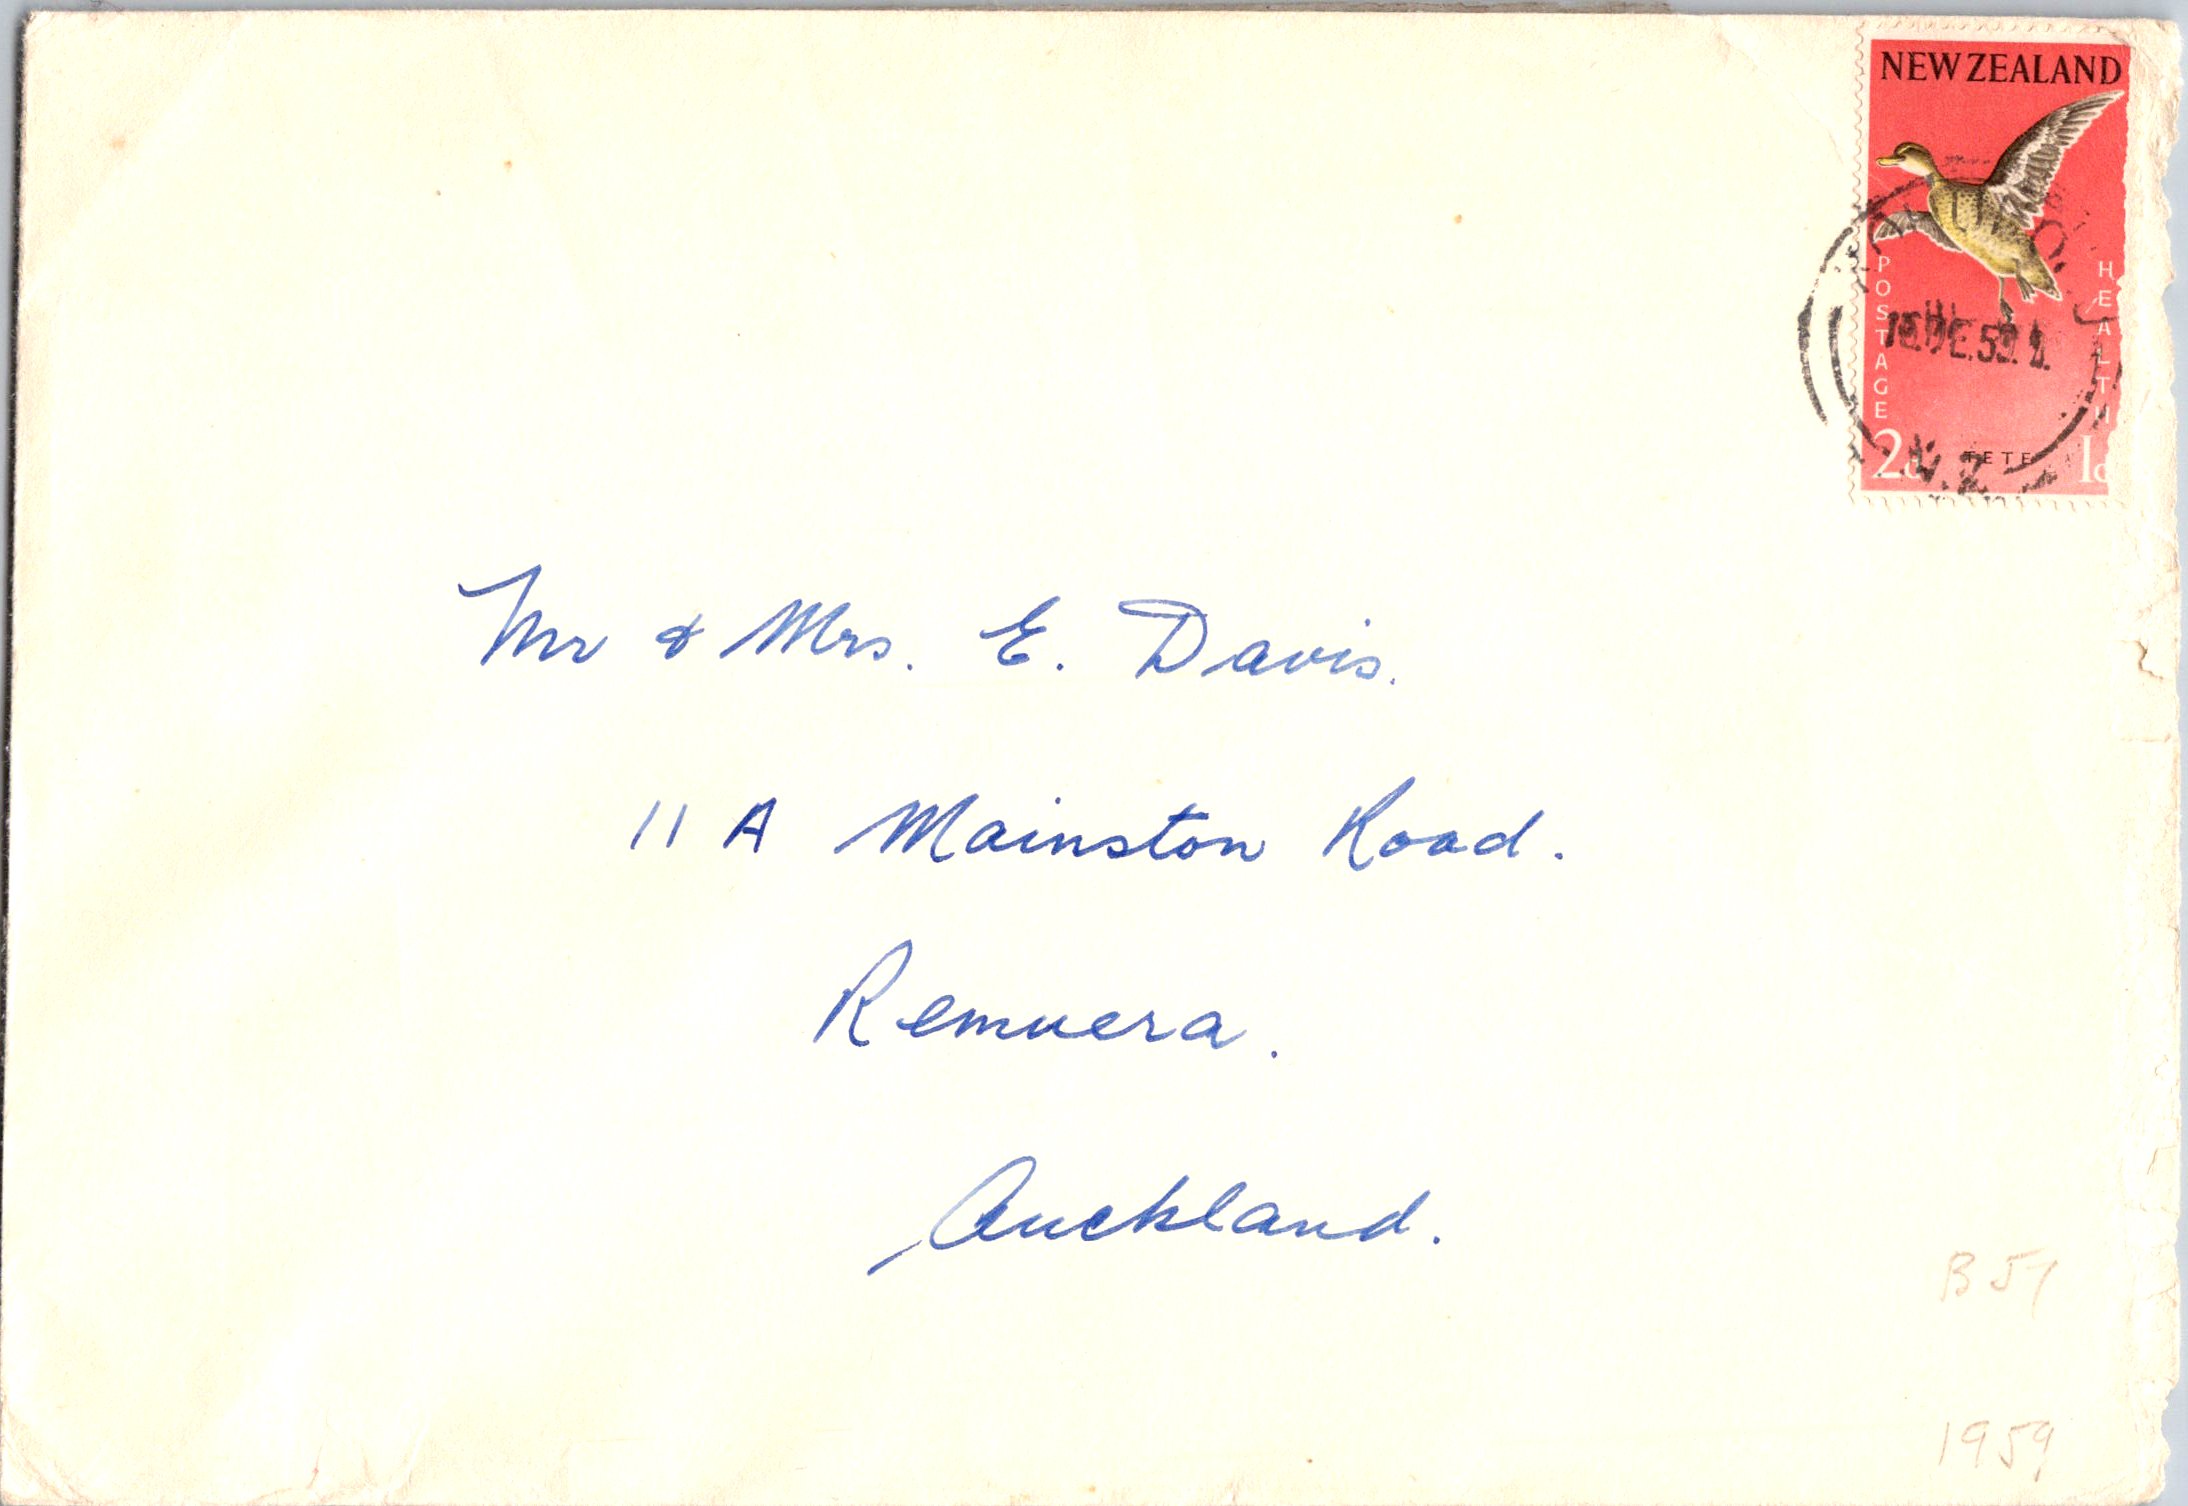 NEW ZEALAND
POSTAGE
HEALTH
2d TETE 1d
N.Z.
Mr & Mrs. E. Davis.
11 A Mainston Road.
Remuera.
Auckland.
B 57
1959